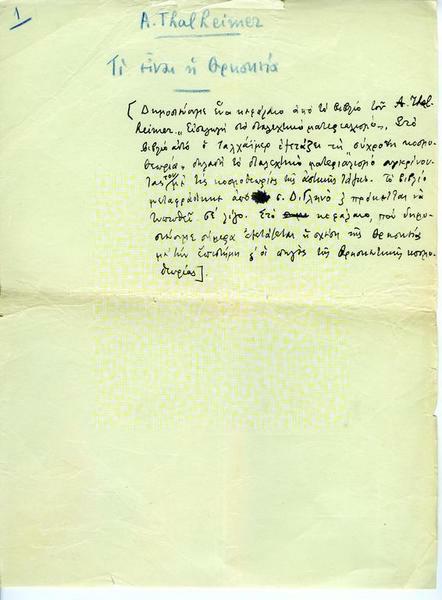 1
A. Thalheimer
Τί εἶναι ἡ θρησκεία
[Δημοσιεύουμε ἕνα κεφάλαιο ἀπό τό βιβλίο τοῦ A. Thal-
heimer „Εἰσαγωγή στό διαλεχτικό ματεριαλισμό„. Στό
βιβλίο αὐτό ὁ Ταλχάϊμερ ἐξετάζει τή σύχρονη κοσμο-
θεωρία, δηλαδή τό διαλεχτικό ματεριαλισμό συγκρίνον-
τας τον μέ τίς κοσμοθεωρίες τῆς ἀστικῆς τάξης. Τό βιβλίο
μεταφράστηκε ἀπό σ. Δ. Γληνό κ πρόκειται νά
τυπωθεῖ σέ λίγο. Στό κεφάλαιο, πού δημο-
σιεύουμε σήμερα ἐξετάζεται ἡ σχέση τῆς θρησκείας
μέ τήν ἐπιστήμη κ οἱ πηγές τῆς θρησκευτικῆς κοσμο-
θεωρίας].